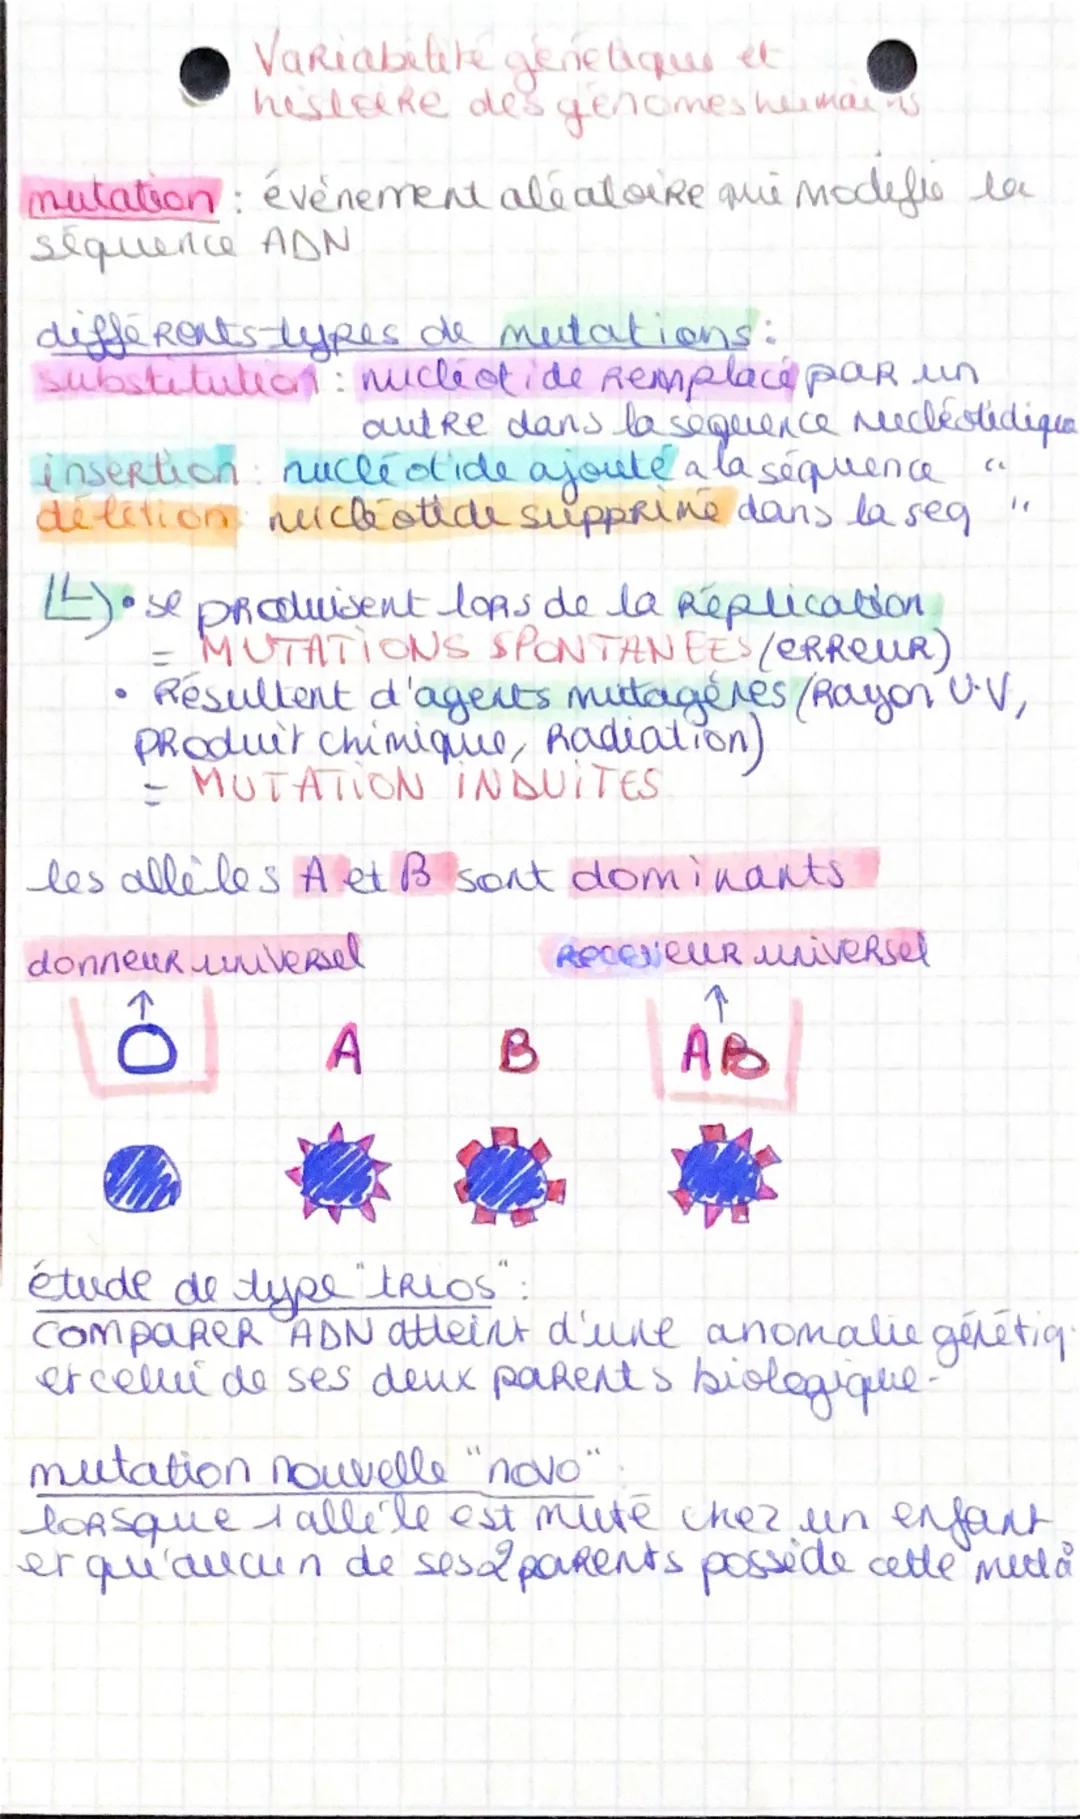 Variabilité génétique et
histoire des génomes humains
mutation : événement aléatoire qui modifie la
séquence ADN
différents types de mutations :
substitution : nucléotide remplacé par un
autre dans la séquence nucléotidique
insertion : nucléotide ajouté a la séquence "
délétion : nucléotide supprimé dans la seq "
• se produisent lors de la réplication
= MUTATIONS SPONTANEES (erreur)
• Résultent d'agents mutagénes (Rayon U.V,
produit chimique, Radiation)
= MUTATION INDUITES
les allèles A et B sont dominants
donneur universel receveur universel
O A B AB
étude de type "trios" :
comparer ADN atteint d'une anomalie génétiq.
et celui de ses deux parents biologique.
mutation nouvelle "novo" :
lorsque 1 allèle est muté chez un enfant
et qu'aucun de ses 2 parents possède cette muta°